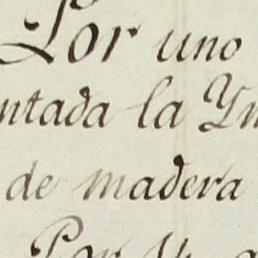 Por uno
ntada la Ym
de madera
Por